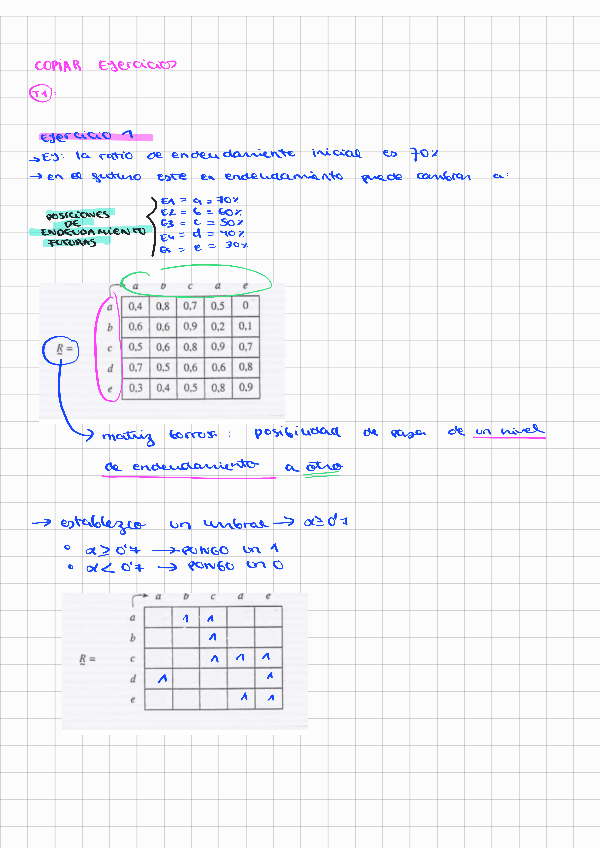 COPIAR Ejercicios
T1:
Ejercicio 1
→ Ej: la ratio de endeudamiento inicial es 70%
→ en el futuro este en endeudamiento puede cambiar a:
POSICIONES DE ENDEUDAMIENTO FUTURAS
E1 = a = 70%
E2 = b = 60%
E3 = c = 50%
E4 = d = 40%
E5 = e = 30%
a b c d e
a 0,4 0,8 0,7 0,5 0
b 0,6 0,6 0,9 0,2 0,1
R = c 0,5 0,6 0,8 0,9 0,7
d 0,7 0,5 0,6 0,6 0,8
e 0,3 0,4 0,5 0,8 0,9
→ matriz borrosa: posibilidad de pasar de un nivel
de endeudamiento a otro
→ establezco un umbral → α ≥ 0'7
• α ≥ 0'7 → PONGO un 1
• α < 0'7 → PONGO un 0
a b c d e
a 1 1
b 1
R = c 1 1 1
d 1 1
e 1 1